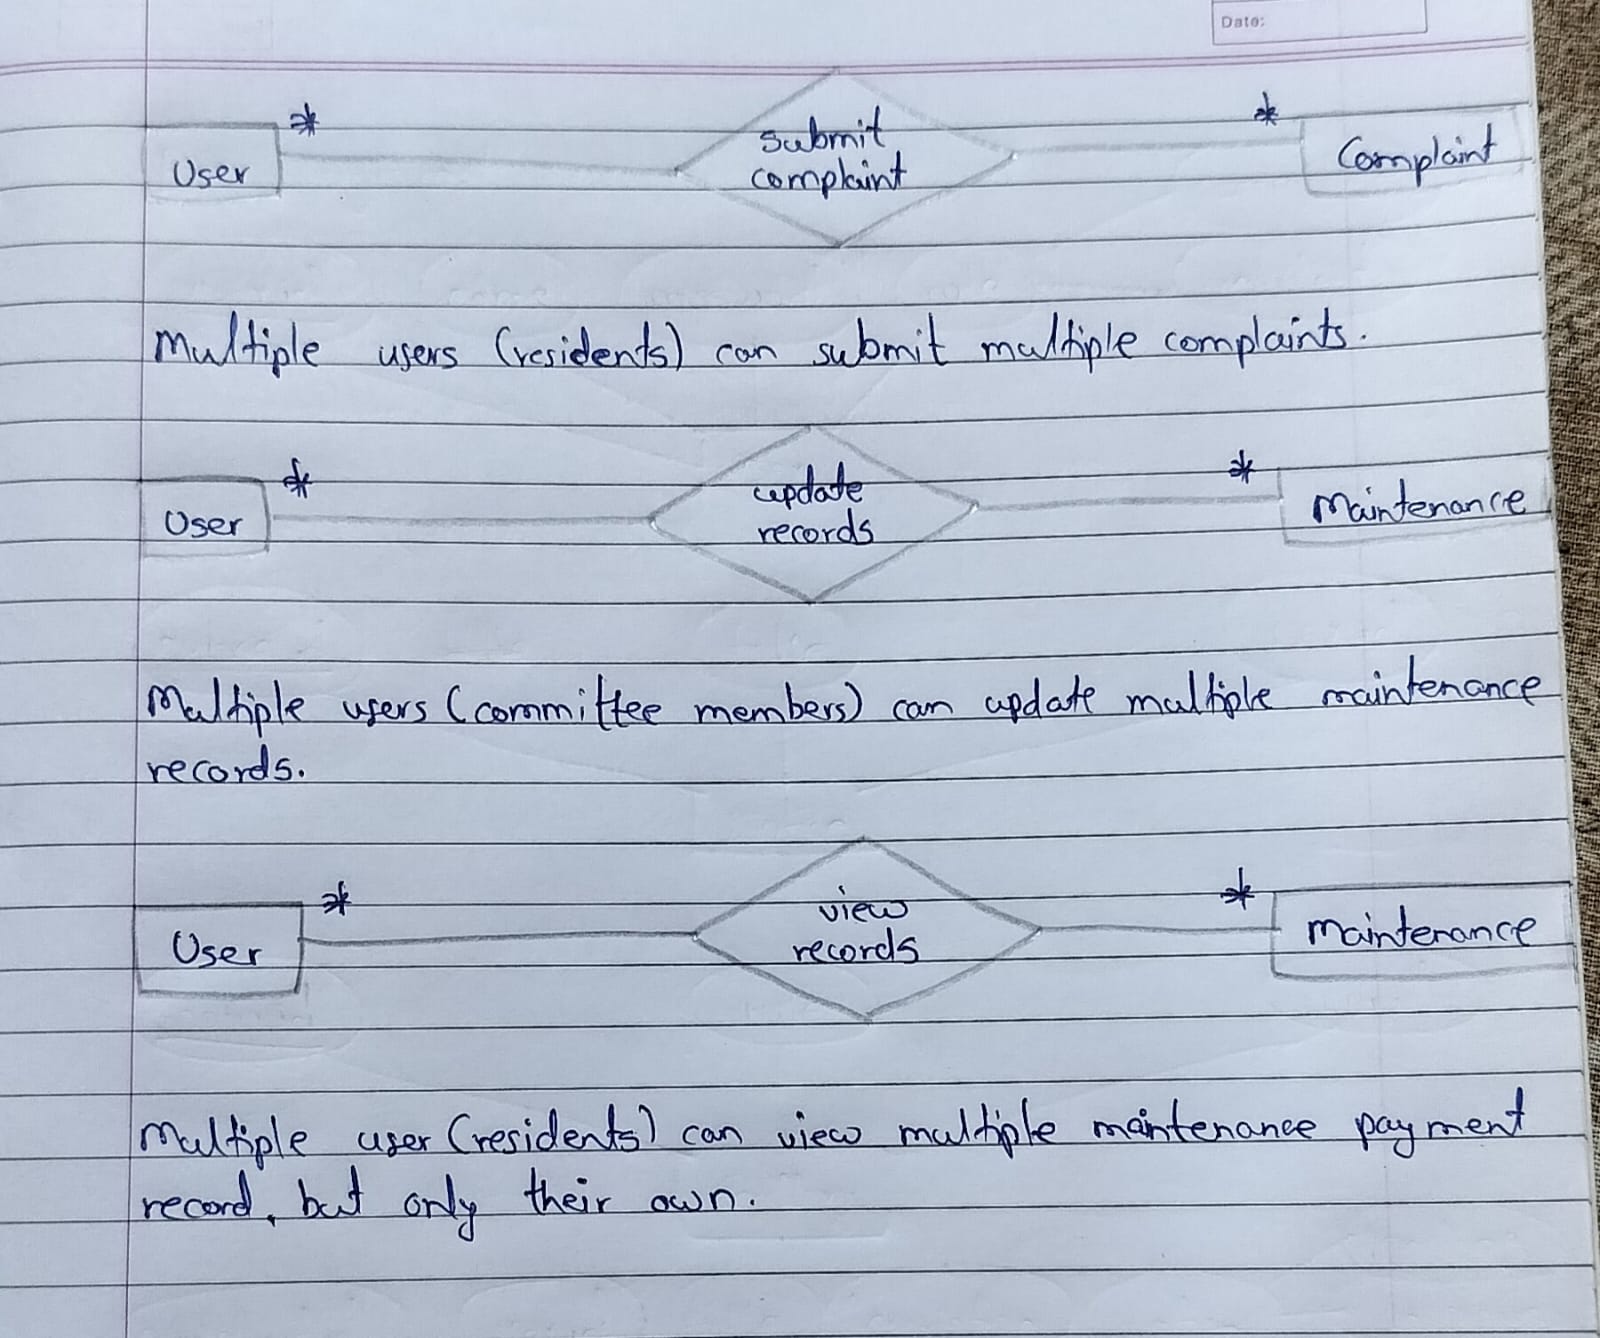 Date:
* *
submit
User complaint Complaint
Multiple users (residents) can submit multiple complaints.
* *
update
User records Maintenance
Multiple users (committee members) can update multiple maintenance
records.
* *
view
User records Maintenance
Multiple user (residents) can view multiple maintenance payment
record, but only their own.